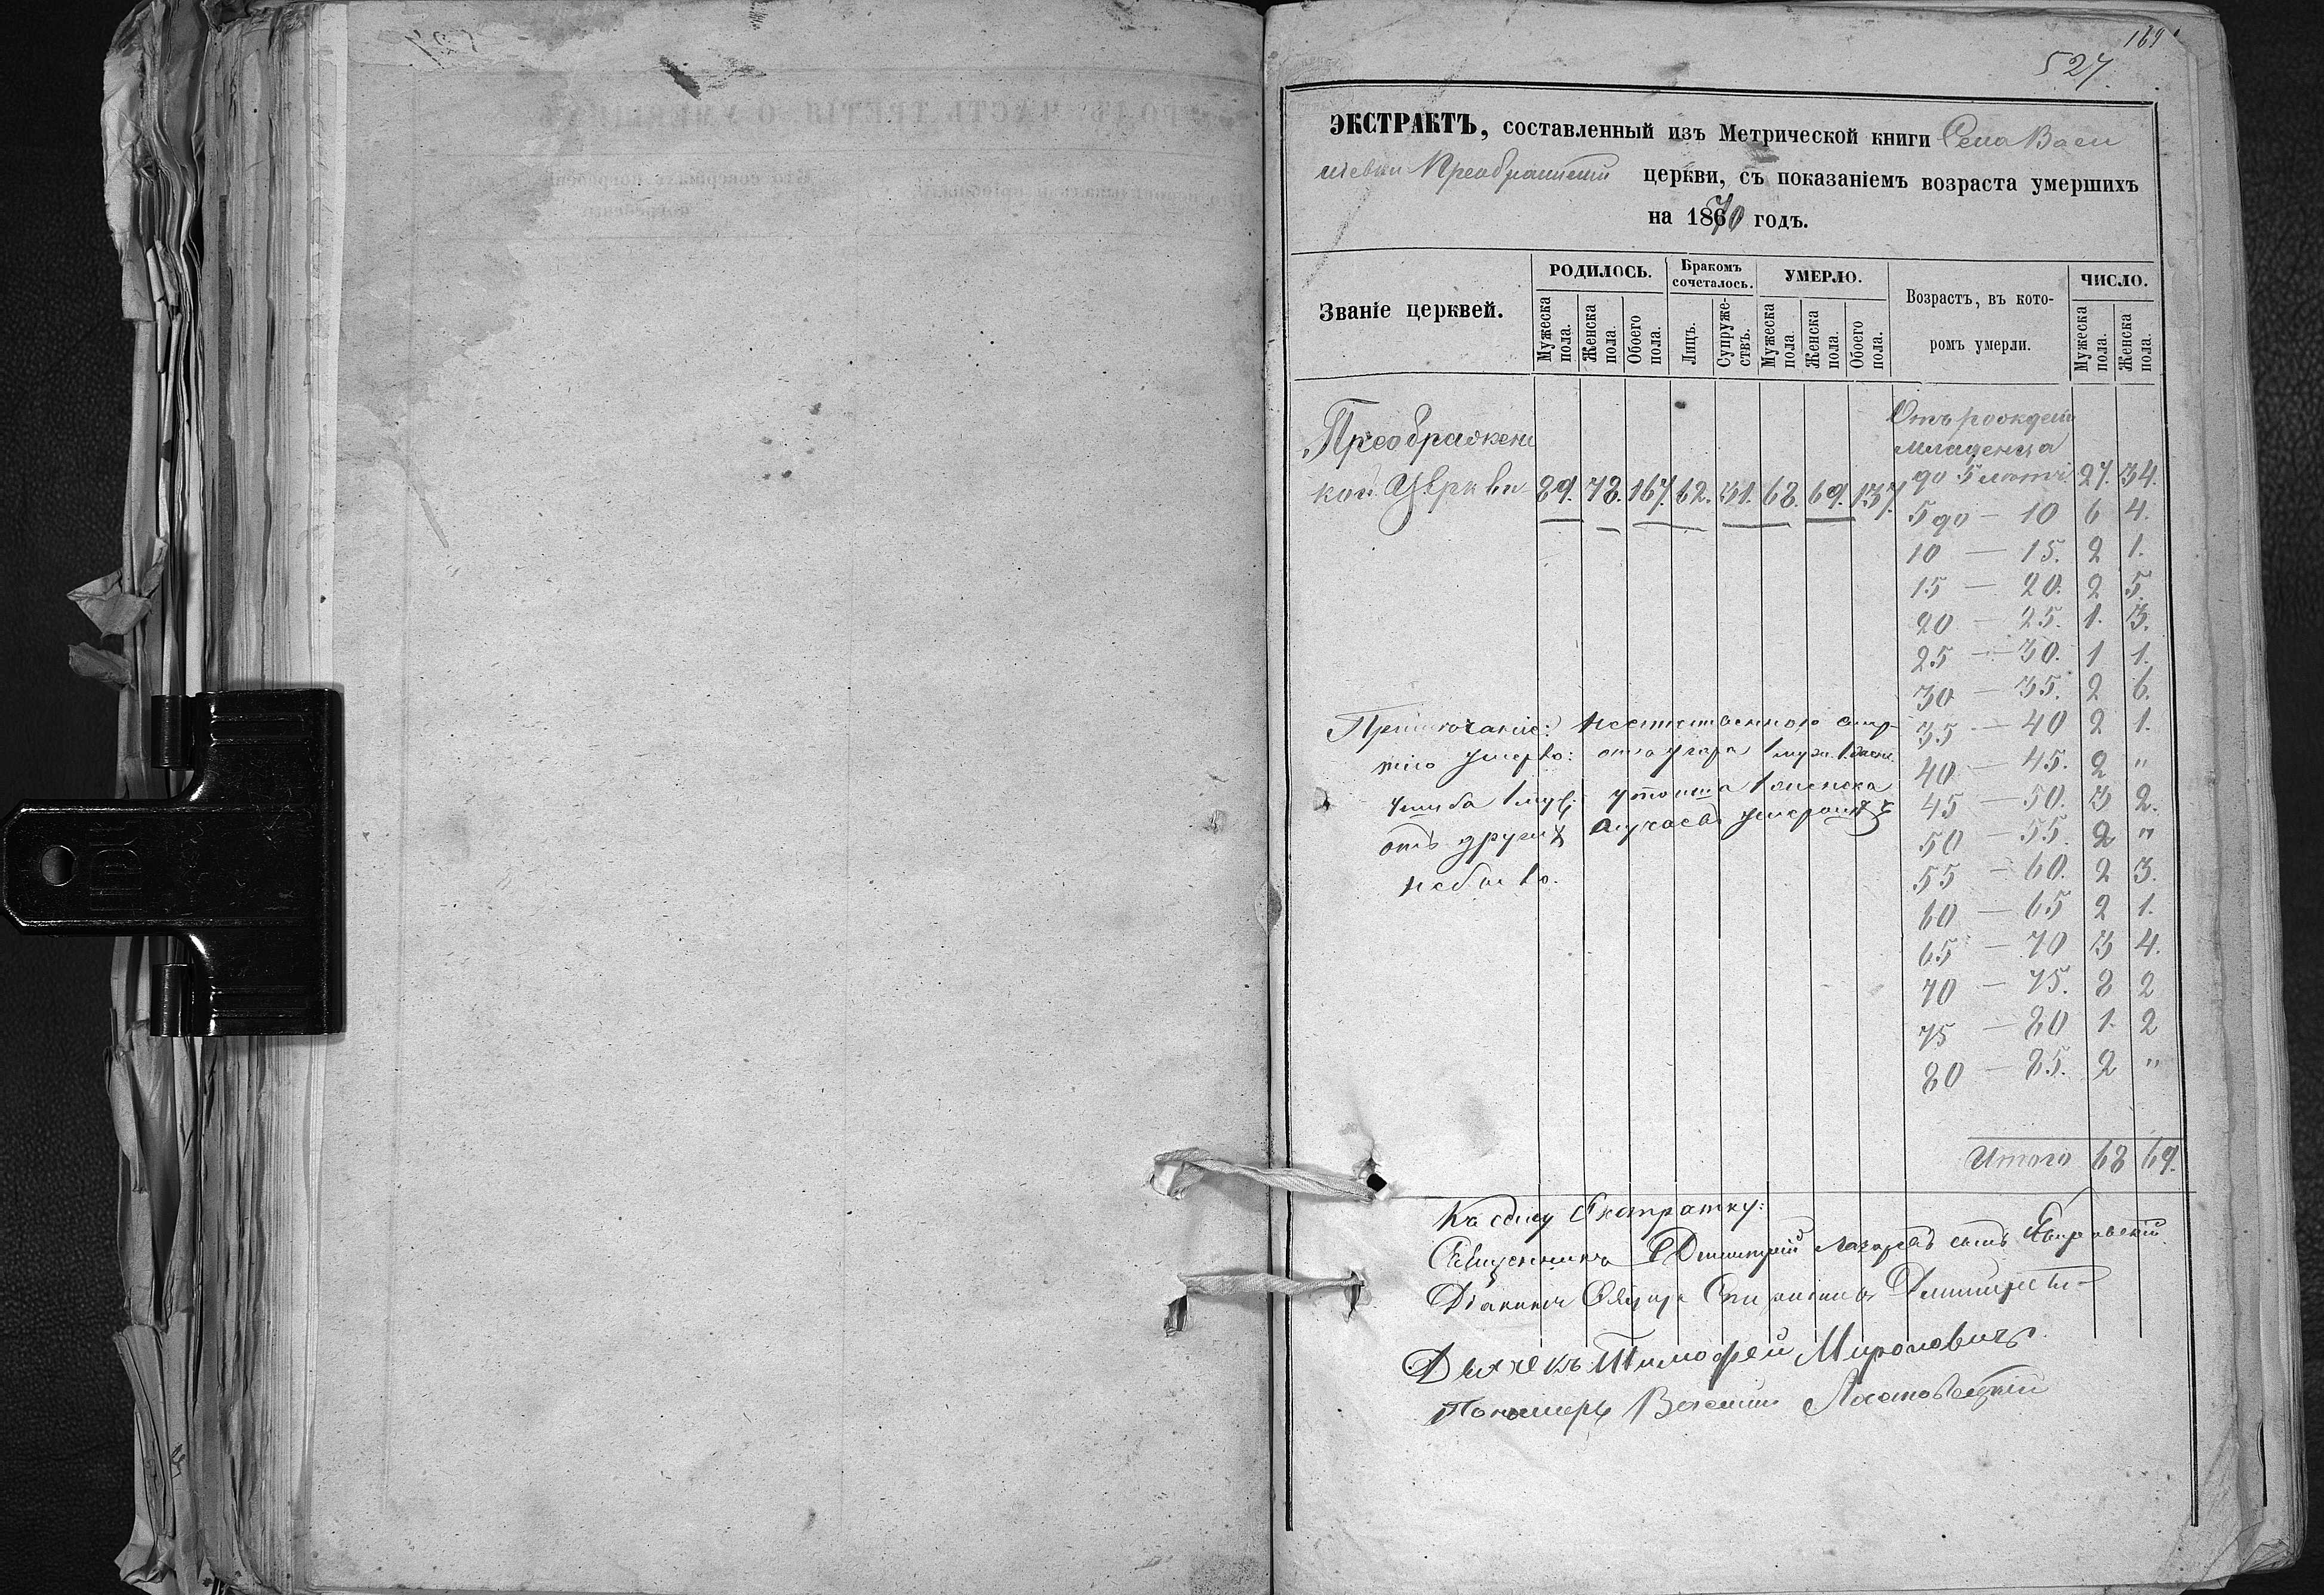 169
527.
ЭКСТРАКТЪ, составленный изъ Метрической книги Села Васи
левки Преображенской церкви, съ показаніемъ возраста умершихъ
на 1870 годъ.
Званіе церквей.
РОДИЛОСЬ.
Бракомъ сочеталось.
УМЕРЛО.
Возрастъ, въ кото-
ромъ умерли.
ЧИСЛО.
Мужеска пола.
Женска пола.
Обоего пола.
Лицъ.
Супруже-ствъ.
Мужеска пола.
Женска пола.
Обоего пола.
Мужеска пола.
Женска пола.
Преображен
кой Церкви 89. 78. 167. 62. 31. 68. 69. 137.
Отъ рожденія
младенца
до 5 лѣтъ. 27. 34.
5 до — 10 6 4.
10 — 15. 2 1.
15 — 20. 2 5.
20 — 25. 1. 3.
25 — 30. 1 1.
30 — 35. 2 6.
35 — 40 2 1.
40 — 45. 2 "
45 — 50. 3 2.
50 — 55. 2 "
55 — 60. 2 3.
60 — 65 2 1.
65 — 70 3 4.
70 — 75. 8 2
75 — 80 1. 2
80 — 85. 2 "
Примѣчаніе: неестественною смер-
тію умерло: отъ угара 1 муж. 1 женс.
ушиба 1 муж: утопша 1 женска
отъ другихъ случаевъ умершихъ
небыло.
Итого 68 69.
Къ сему Екстракту:
Священникъ Димитрій Лазаревъ сынъ
Діаконъ
Дьячекъ Тимофей Мироновичъ.
Пономарь Василий